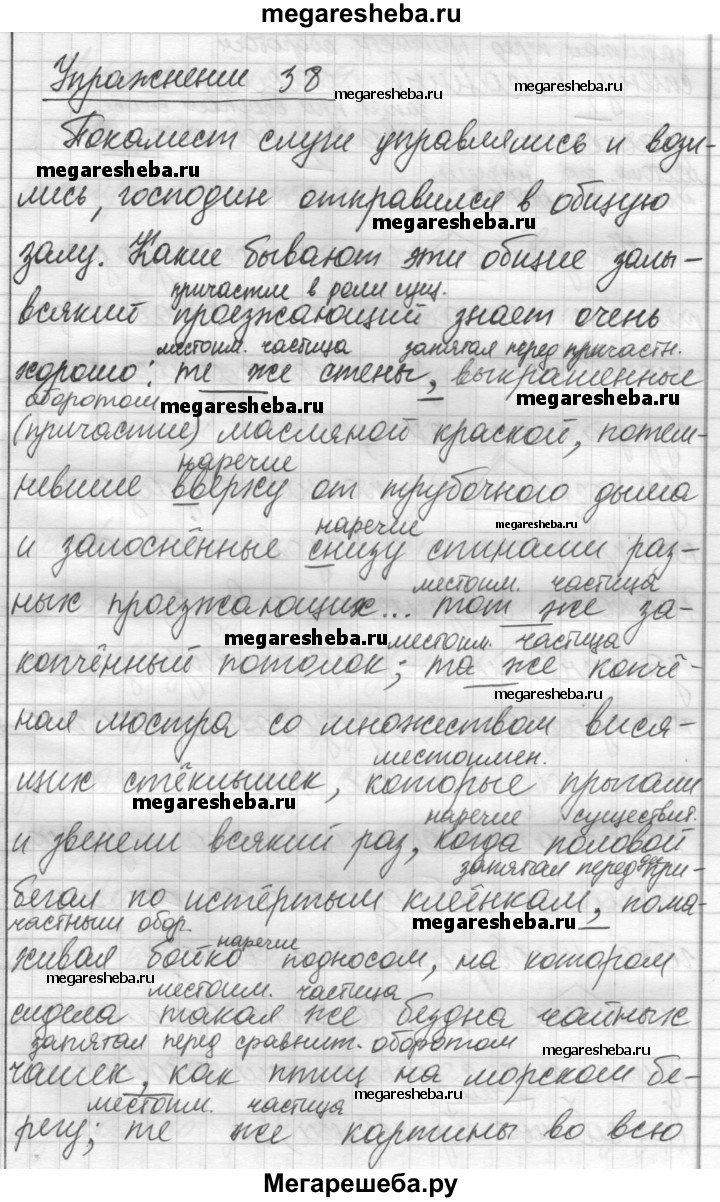 megaresheba.ru
Упражнении 38
megaresheba.ru megaresheba.ru
Покамест слуги управлялись и вози-
megaresheba.ru
лись, господин отправился в общую
megaresheba.ru
залу. Какие бывают эти общие залы -
причастие в роли сущ.
всякий проезжающий знает очень
местоим. частица запятая перед причастн.
хорошо: те же стены, выкрашенные
оборотом megaresheba.ru megaresheba.ru
(причастие) масляной краской, потем-
наречие
невшие вверху от трубочного дыма
наречие megaresheba.ru
и залоснённые снизу спинами раз-
местоим. частица
ных проезжающих... тот же за-
megaresheba.ru местоим. частица
копчённый потолок; та же копчё-
megaresheba.ru
ная люстра со множеством вися-
местоимен.
щих стёклышек, которые прыгали
megaresheba.ru
наречие существит.
и звенели всякий раз, когда половой
запятая перед деепри-
бегал по истёртым клеёнкам, пома-
частным обор. megaresheba.ru
наречие
живая бойко подносом, на котором
megaresheba.ru
местоим. частица
сидела такая же бездна чайных
запятая перед сравнит. оборотом megaresheba.ru
чашек, как птиц на морском бе-
местоим. частица megaresheba.ru
регу; те же картины во всю
Мегарешеба.ру